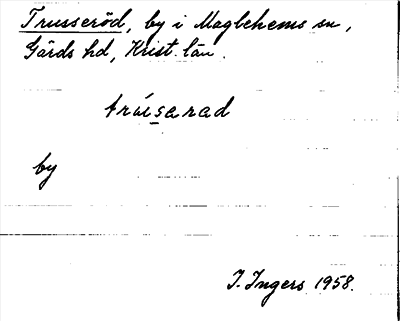 Trusseröd, by i Maglehems sn,
Gärds hd, Krist. län.
trúsarad
by
I. Ingers 1958.